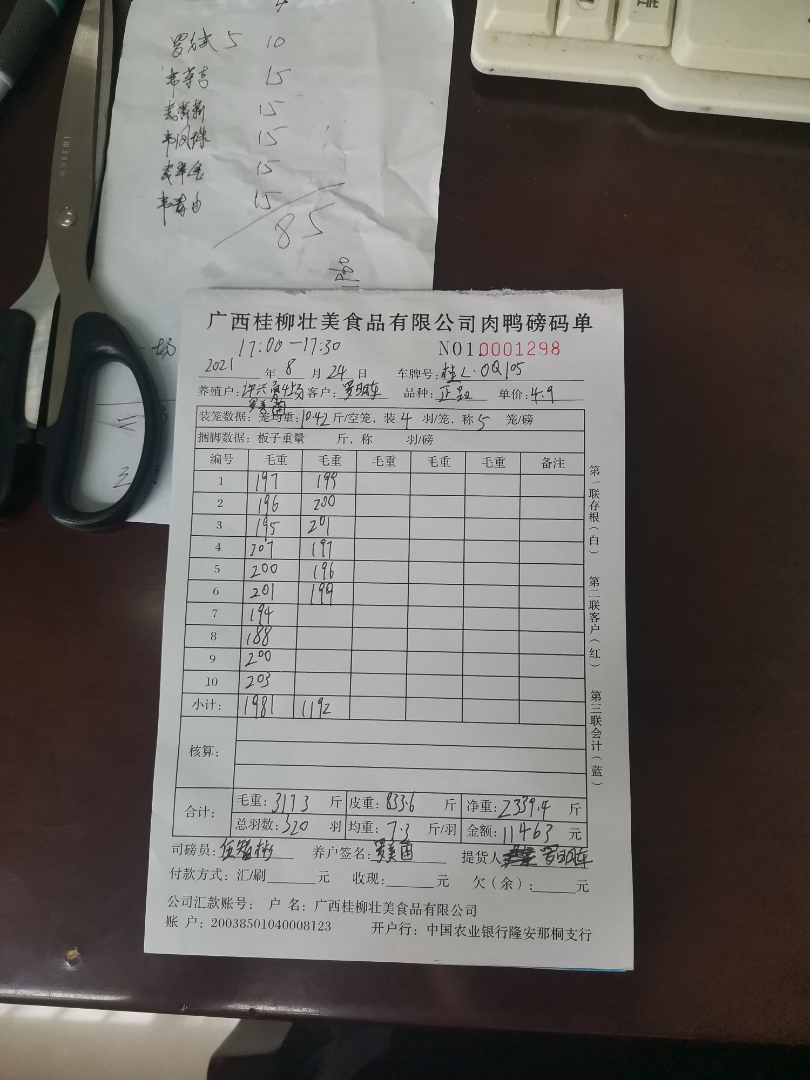 5 10
15
15
15
15
15
85
广西桂柳壮美食品有限公司肉鸭磅码单
17:00-17:30 NO1.0001298
2021 年 8 月 24 日 车牌号:桂L·0Q105
养殖户: 客户:罗明车 品种: 单价:4.9
罗美茵
装笼数据:笼均重:10.42斤/空笼,装4羽/笼,称5笼/磅
捆脚数据:板子重量 斤,称 羽/磅
编号 毛重 毛重 毛重 毛重 毛重 备注
1 197 199
2 196 200
3 195 201
4 207 197
5 200 196
6 201 199
7 194
8 188
9 200
10 203
小计: 1981 1192
核算:
合计: 毛重:3173斤 皮重:833.6斤 净重:2339.4斤
总羽数:320羽 均重:7.3斤/羽 金额:11463元
司磅员: 养户签名:罗美茵 提货人 罗明车
付款方式:汇/刷 元 收现: 元 欠(余): 元
公司汇款账号: 户 名:广西桂柳壮美食品有限公司
账 户:20038501040008123 开户行:中国农业银行隆安那桐支行
第一联存根(白)
第二联客户(红)
第三联会计(蓝)